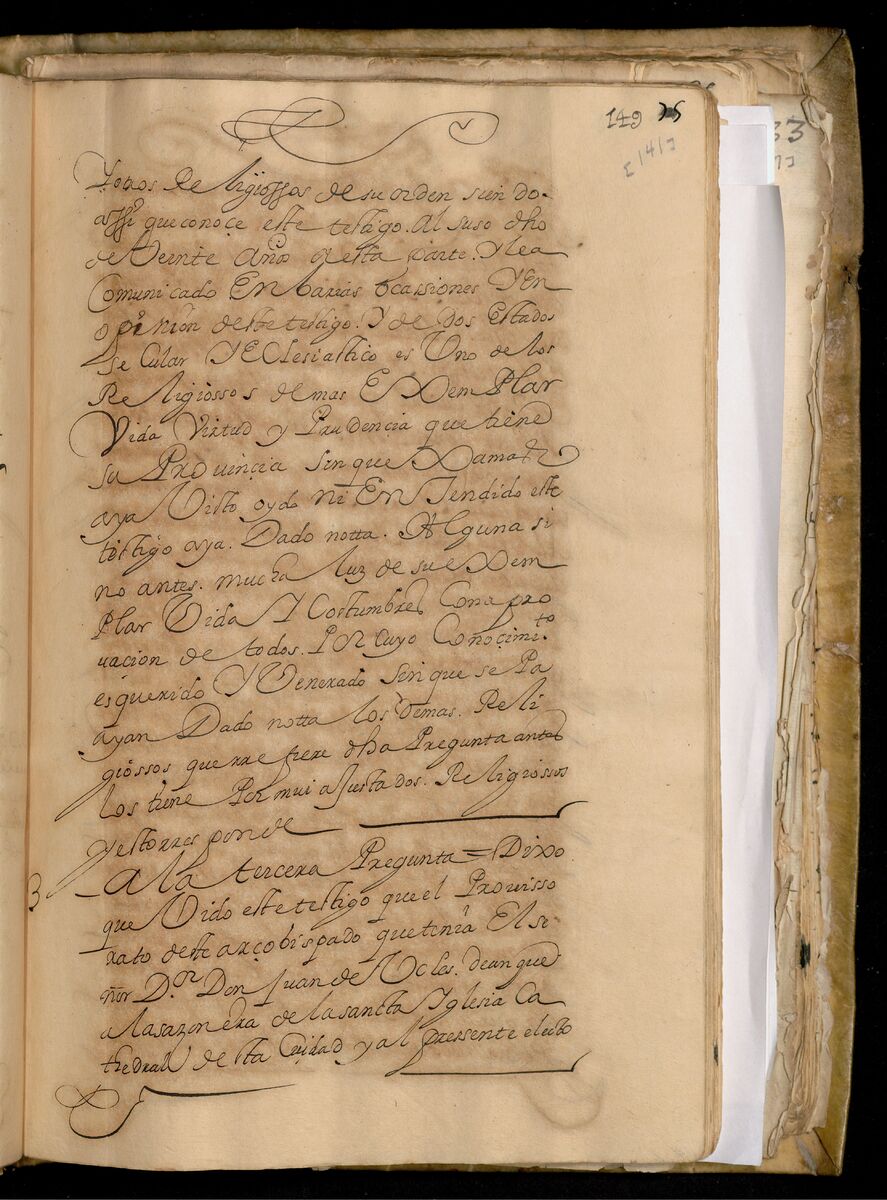 149 35
[141]
33
Y otros Religiossos de su orden sien do
assi que conoce este testigo. Al suso dho
de Veinte años a esta parte. Y lea
Comunicado En barias ocassiones Y En
opinion de este testigo. Y de dos Estados
se Cular Y Eclesiastico es Uno de los
Religiossos de mas Exem Plar
Vida Virtud y Prudencia que tiene
su Provincia sin que Xamas
aya Visto oydo ni En Tendido este
testigo aya. Dado notta. Alguna si
no antes. mucha luz de su eXem
Plar Vida Y Costumbres Con apro
uacion de todos. Por cuyo Conoçimito
es querido Y Venerado sin que se Pa
ayan Dado notta los demas. Reli
giossos que rre fiere dha Pregunta antes
los tiene Por mui ajustados. Religiossos
y esto rres ponde
3 A la tercera Pregunta = Dixo
que Vido este testigo que el Prouisso
rato deste arçobispado que tenia El se
ñor D.or Don Juan de Ucles. dean que
a la sazon era de la santta Yglesia Ca
thedral de sta Ciudad y al pressente electo